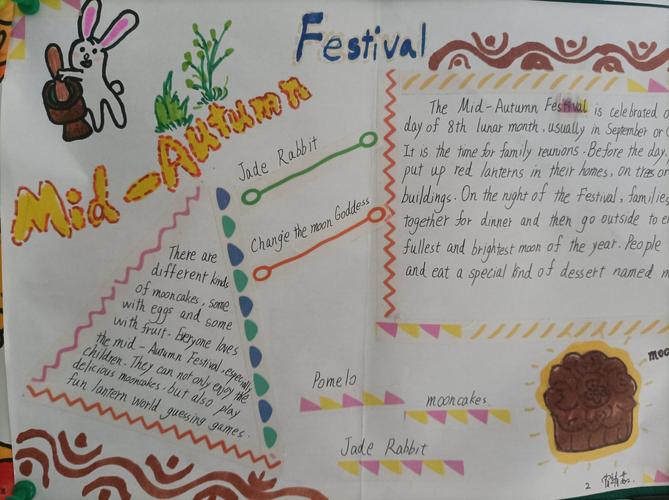 Festival
Mid-Autumn
Jade Rabbit
Change the moon Goddess
The Mid-Autumn Festival is celebrated o
day of 8th lunar month, usually in September or
It is the time for family reunions. Before the day.
put up red lanterns in their homes, on trees or
buildings. On the night of the Festival, families
together for dinner and then go outside to e
fullest and brightest moon of the year. People
and eat a special kind of dessert named m
There are
different kinds
of mooncakes, some
with eggs and some
with fruit. Everyone loves
the mid-Autumn Festival, especially
children. They can not only enjoy the
delicious mooncakes. but also play
fun lantern world guessing games.
Pomelo
mooncakes
Jade Rabbit
moo
2